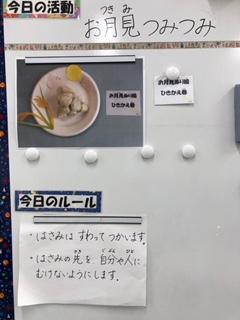 今日の活動
つきみ
お月見つみつみ
お月見ぬり絵
ひきかえ券
お月見ぬり絵
ひきかえ券
今日のルール
・はさみは すわって つかいます。
さき じぶん ひと
・はさみの 先を 自分や人に
むけないようにします。